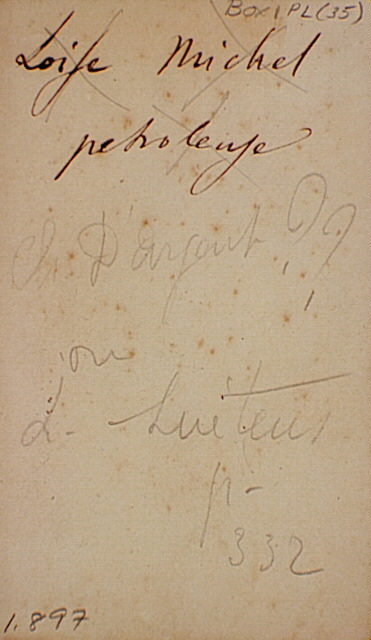 Box 1 PL(35)
Loise Michel
petroleuse
Ch. D'argent ??
ou
L.
p-
332
1.897